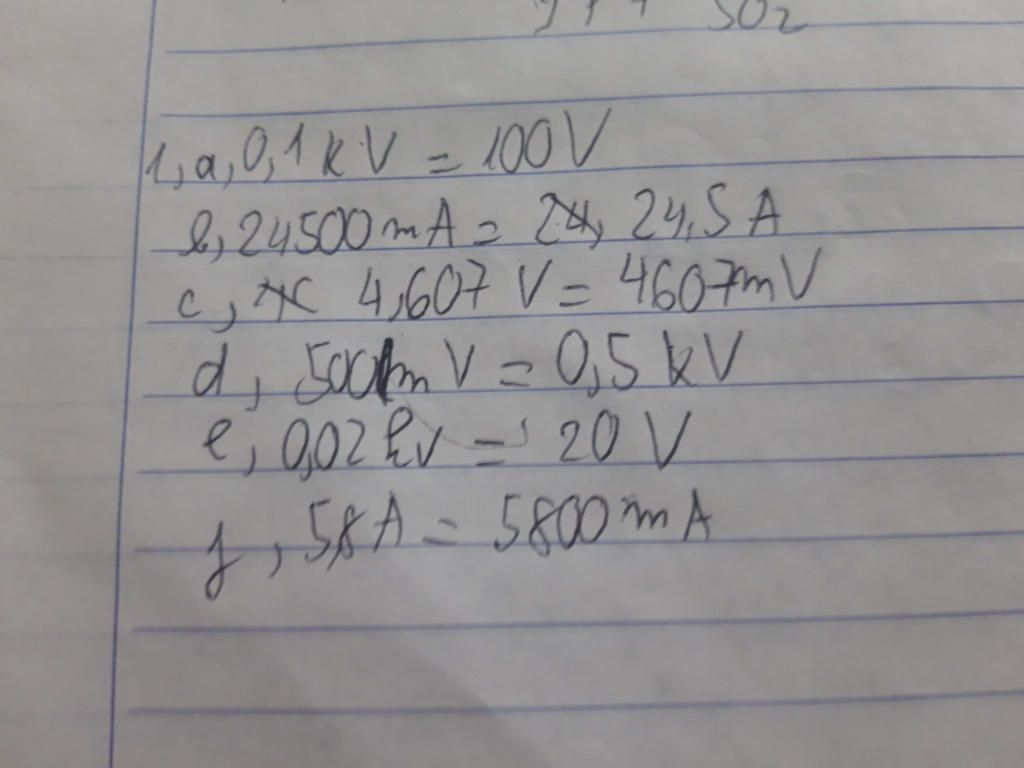 SO2
1, a, 0,1 kV = 100V
b, 24500mA = 24, 24,5 A
c, 4,607 V = 4607mV
d, 500 mV = 0,5 kV
e, 0,02 kv = 20 V
f, 5,8A = 5800mA